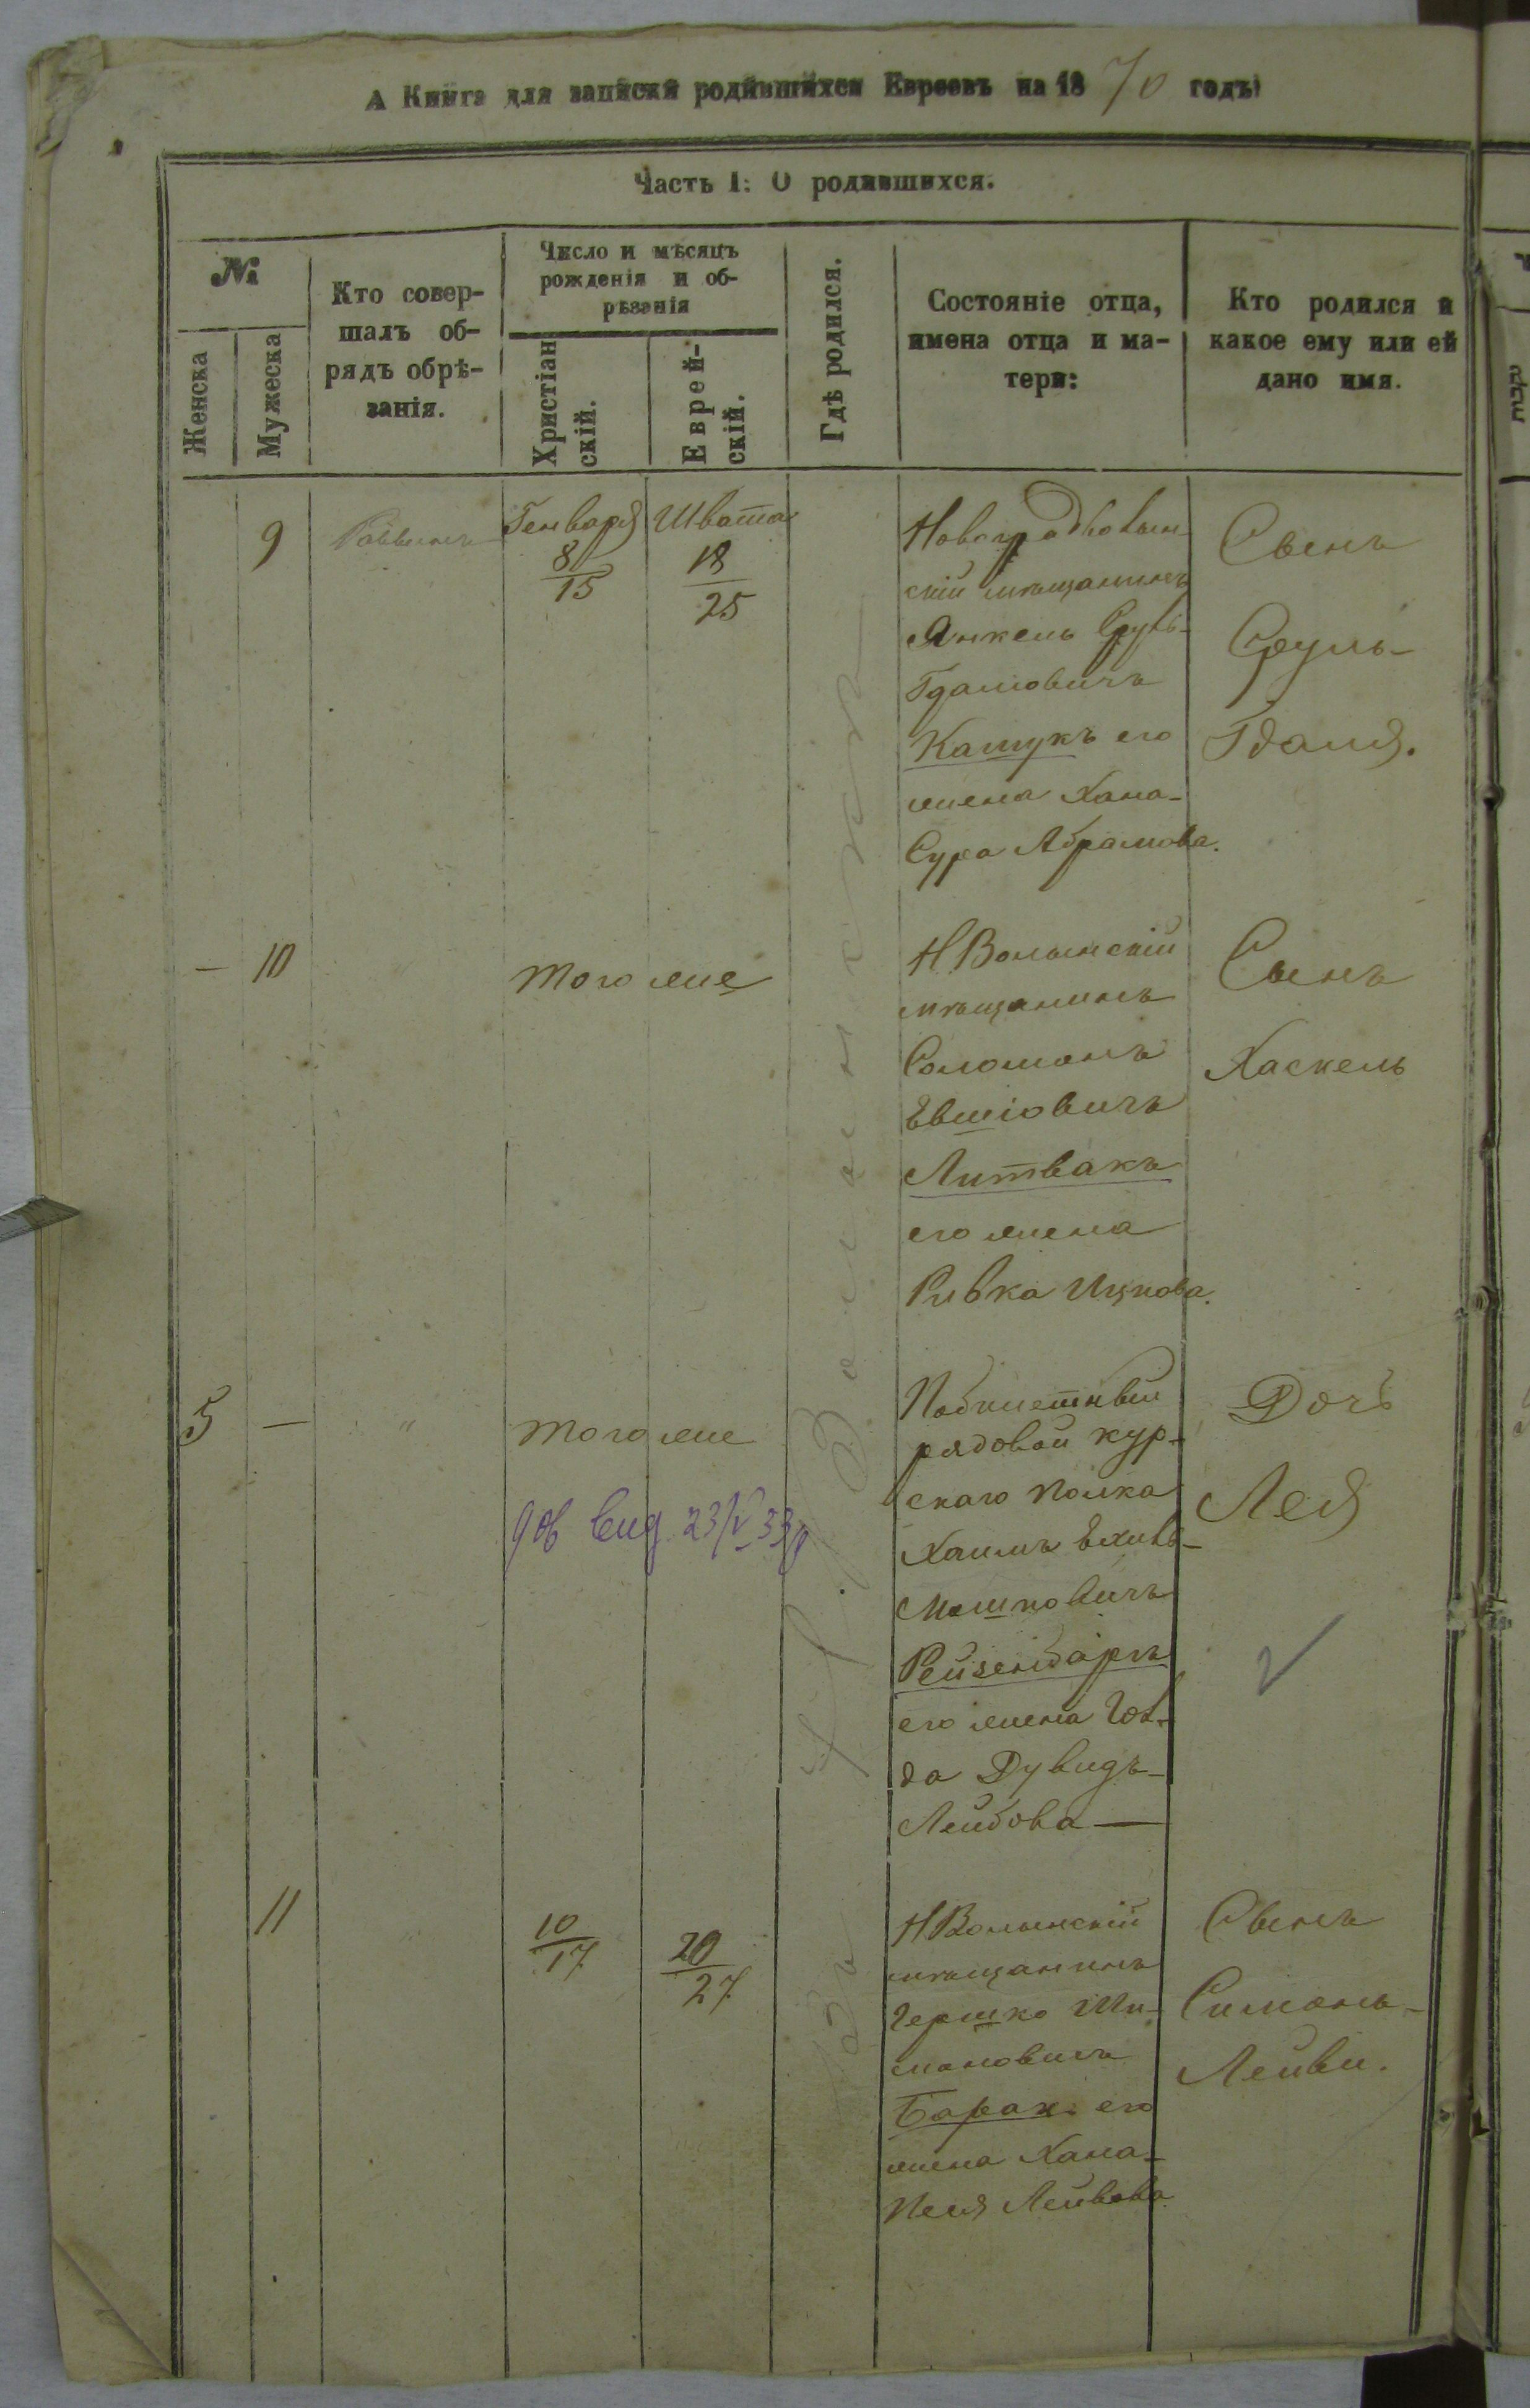 А Книга для записки родившихся Евреевъ на 1870 годъ
Часть I: О родившихся.
№
Женска
Мужеска
Кто совер-
шалъ об-
рядъ обрѣ-
занія.
Число и мѣсяцъ
рожденія и об-
рѣзанія
Христіан
скій.
Еврей-
скій.
Гдѣ родился.
Состояніе отца,
имена отца и ма-
тери:
Кто родился и
какое ему или ей
дано имя.
9
Раввинъ
Генваря
8
15
Швата
18
25
скій мѣщанинъ
Янкель Сруль-
Гдаліовичъ
его
жена Хана-
Сура Абрамова.
Сынъ
Сруль-
Гдаля.
— 10 "
того же
НВолынскій
мѣщанинъ
Соломонъ
Евшіовичъ
Литвакъ
его жена
Ривка Ицкова.
Сынъ
Хаскель
5 — "
того же
23/V 33
рядовой кур-
скаго полка
Хаимъ
Мошковичъ
его жена Гол-
да Дувидъ-
Лейбова —
Дочь
Лея
11
10
17
20
27
НВолынскій
мѣщанинъ
Гершко Ши-
моновичъ
его
жена Хана-
Песя Лейбова
Сынъ
Симонъ-
Лейви.